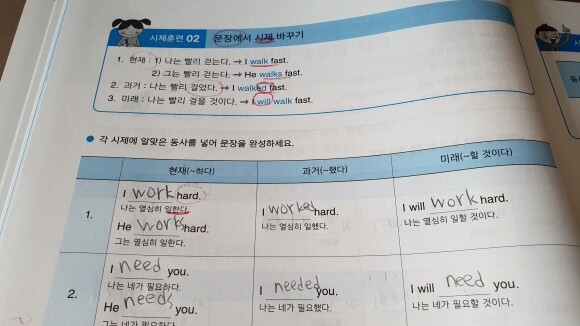 시제훈련 02 문장에서 시제 바꾸기
1. 현재 : 1) 나는 빨리 걷는다. → I walk fast.
2) 그는 빨리 걷는다. → He walks fast.
2. 과거 : 나는 빨리 걸었다. → I walked fast.
3. 미래 : 나는 빨리 걸을 것이다. → I will walk fast.
● 각 시제에 알맞은 동사를 넣어 문장을 완성하세요.
현재(~하다) 과거(~했다) 미래(~할 것이다)
1.
I work hard.
나는 열심히 일한다.
He works hard.
그는 열심히 일한다.
I worked hard.
나는 열심히 일했다.
I will work hard.
나는 열심히 일할 것이다.
2.
I need you.
나는 네가 필요하다.
He needs you.
그는 네가 필요하다.
I needed you.
나는 네가 필요했다.
I will need you.
나는 네가 필요할 것이다.